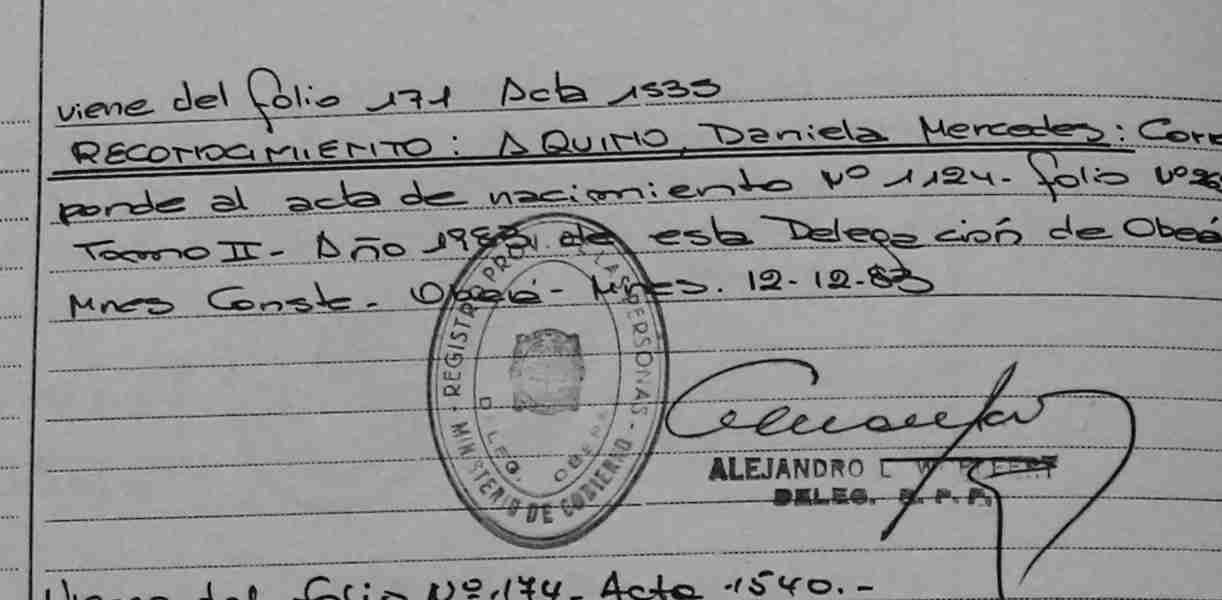 viene del folio 171 Acta 1535
RECONOCIMIENTO: AQUINO, Daniela Mercedes: Corre
ponde al acta de nacimiento Nº 1124- folio Nº
Tomo II- Año 1983 de esta Delegación de Oberá
Mnes Conste- Oberá- Mnes. 12-12-83
MINISTERIO DE GOBIERNO - REGISTRO PROV. DE LAS PERSONAS -
DELEG. OBERÁ
ALEJANDRO
DELEG. R. P. P.
Viene del folio Nº 174- Acta 1540.-